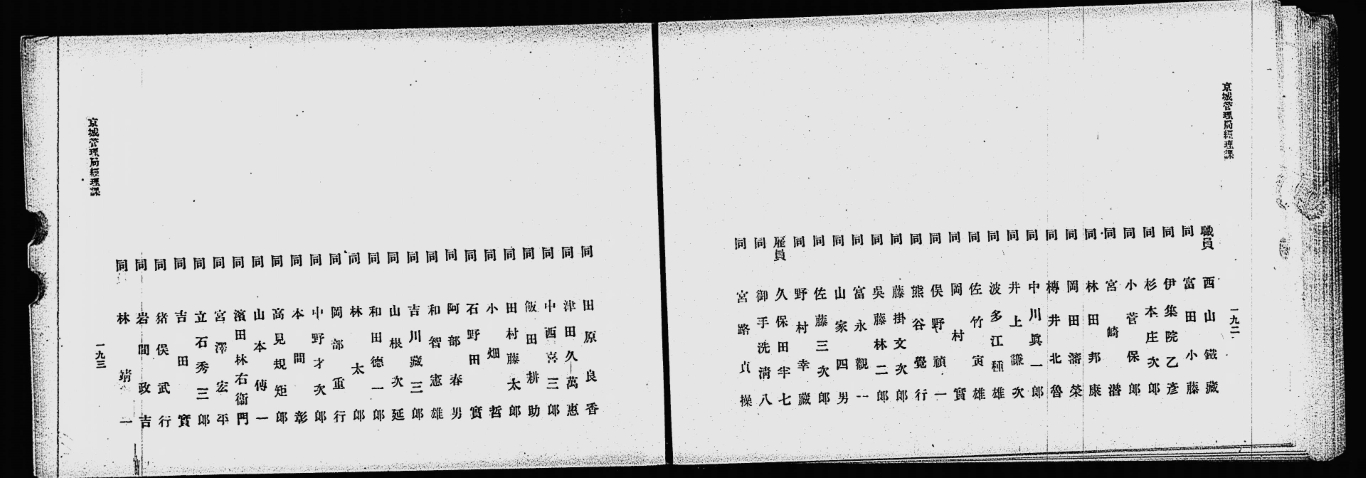 京城管理局經理課
一九二
職員 西山鐵藏
同 富田小藤
同 伊集院乙彥
同 杉本庄次郎
同 小菅保郎
同 宮崎潛
同 林田邦康
同 岡田藩榮
同 樽井北魯
同 中川眞一郎
同 井上謙次
同 波多江種雄
同 佐竹寅雄
同 岡村實
同 俣野禎一
同 熊谷覺行
同 藤掛文次郎
同 吳藤林二郎
同 富永觀一
同 山家四男
同 佐藤三次郎
同 野村幸藏
雇員 久保田半七
同 御手洗淸八
同 宮路貞操
同 田原良香
同 津田久萬惠
同 中西喜三郎
同 飯田耕助
同 田村藤太郎
同 小畑哲
同 石野田實
同 阿部春男
同 和智憲雄
同 吉川藏三郎
同 山根次延
同 和田德一郎
同 林太郎
同 岡部重行
同 中野才次郎
同 本間彰
同 高見規矩郎
同 山本傳一
同 濱田林右衞門
同 宮澤宏平
同 立石秀三郎
同 吉田實
同 猪俣武行
同 岩間政吉
同 林靖一
京城管理局經理課
一九三